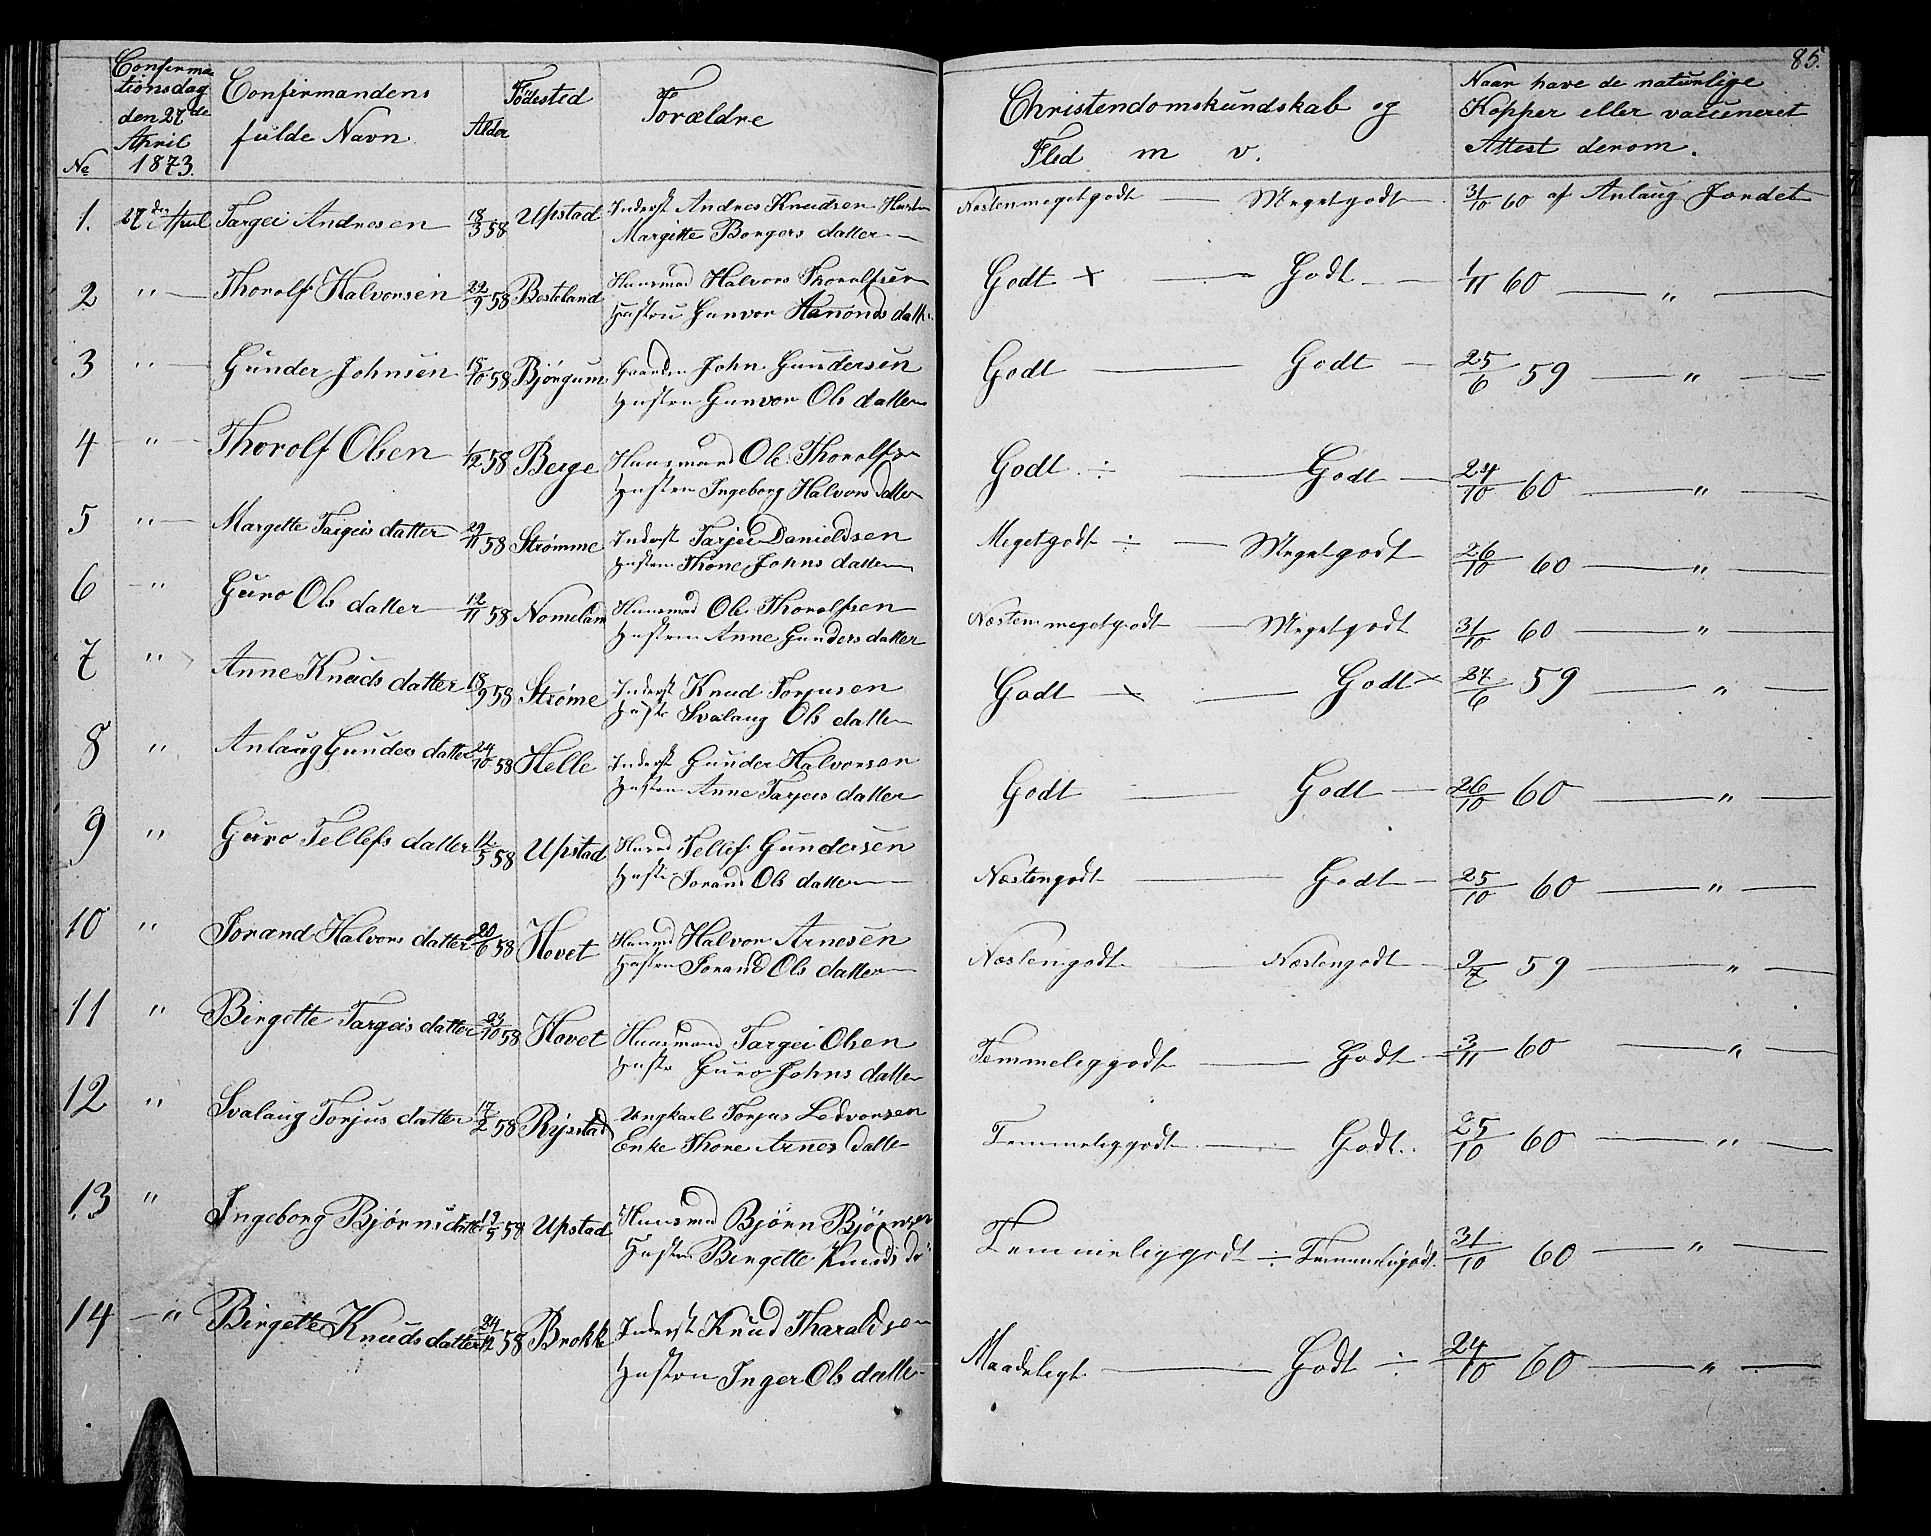 85.
Confirma-
tionsdag
den 27de
April
1873.
No
Confirmandens
fulde Navn
Alder
Födested
Forældre
Christendomskundskab og
Flid m v.
Naar have de naturlige
Kopper eller vaccineret
Attest derom.
1. 27de April Targei Andresen 18/3 58 Upstad Inderst Andres Knudsen Hustru Næstenmegetgodt — Megetgodt 31/10 60 af Anlaug Jordet
Margitte Borgers datter
2 " Thorolf Halvorsen 29/9 58 Besteland Huusmad Halvors Thorolfsen Godt + — Godt 1/11 60 — " —
Hustru Gunvor Aanonds datt.
3 " Gunder Johnsen 15/10 58 Bjørgum Gaardm John Gundersen Godt — Godt — 25/6 59 — " —
Hustru Gunvor Ols datter
4 " Thorolf Olsen 1/12 58 Berge Huusmand Ole Thorolfsen Godt ÷ — Godt — 24/10 60 — " —
Hustru Ingeborg Halvors datter
5 " Margette Targeis datter 29/11 58 Strømme Inderst Tarjei Danieldsen Megetgodt ÷ — Megetgodt 26/10 60 — " —
Hustru Thone Johns datter
6 " Guro Ols datter 12/11 58 Nomeland Huusmad Ole Thorolfsen Næstenmegetgodt — Megetgodt 31/10 60 — " —
Hustru Anne Gunders datter
7 " Anne Knuds datter 18/9 58 Strøme Inderst Knud Torjusen Godt + — Godt + 27/6 59 — " —
Hustr Svalaug Ols datter
8 " Anlaug Gunders datter 24/10 58 Helle Inderst Gunder Halvorsen Godt — Godt — 26/10 60 — " —
Hustru Anne Tarjeis datter
9 " Guro Tellefs datter 12/5 58 Upstad Huusd Tellef Gundersen Næstengodt — Godt — 25/10 60 — " —
Hustr Torand Ols datter
10 " Torand Halvors datter 20/6 58 Hovet Huusmd Halvor Arnesen Næstengodt — Næstengodt — 9/7 59 — " —
Hustru Torand Ols datter
11 " Birgette Targeis datter 23/10 58 Hovet Huusmand Targei Olsen Temmeliggodt — Godt — 3/11 60 — " —
Hustr Guro Johns datter
12 " Svalaug Torjus datter 17/2 58 Rysstad Ungkarl Torjus Ledvorsen Temmeliggodt — Godt. 25/10 60 — " —
Enke Thone Arnes datter
13 " Ingeborg Bjørns datter 19/5 58 Upstad Huusmd Bjørn Bjørnsen Temmeliggodt ÷ Temmeligodt. 31/10 60 — " —
Hustru Birgette Knuds dr
14 — " Birgette Knuds datter 24/12 58 Brokke Inderst Knud Tharaldsen Maadeligt — Godt ÷ 24/10 60 — " —
Hustru Inger Ols datter